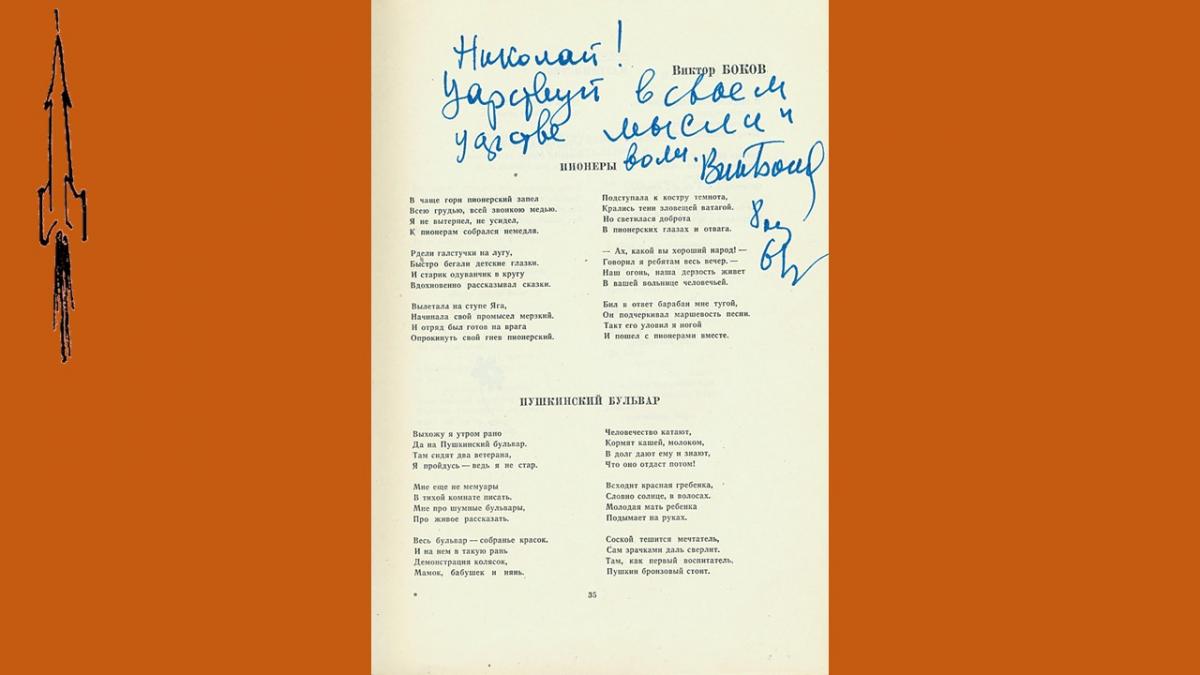 Николай!
Виктор БОКОВ
Царствуй в своем
царстве мысли и
воли. Викт Боков
ПИОНЕРЫ
В чаще горн пионерский запел
Всею грудью, всей звонкою медью.
Я не вытерпел, не усидел,
К пионерам собрался немедля.
Рдели галстучки на лугу,
Быстро бегали детские глазки.
И старик одуванчик в кругу
Вдохновенно рассказывал сказки.
Вылетала на ступе Яга,
Начинала свой промысел мерзкий.
И отряд был готов на врага
Опрокинуть свой гнев пионерский.
Подступала к костру темнота,
Крались тени зловещей ватагой.
Но светилася доброта
В пионерских глазах и отвага.
— Ах, какой вы хороший народ! —
Говорил я ребятам весь вечер. —
Наш огонь, наша дерзость живет
В вашей вольнице человечьей.
Бил в ответ барабан мне тугой,
Он подчеркивал маршевость песни.
Такт его уловил я ногой
И пошел с пионерами вместе.
ПУШКИНСКИЙ БУЛЬВАР
Выхожу я утром рано
Да на Пушкинский бульвар.
Там сидят два ветерана,
Я пройдусь — ведь я не стар.
Мне еще не мемуары
В тихой комнате писать.
Мне про шумные бульвары,
Про живое рассказать.
Весь бульвар — собранье красок.
И на нем в такую рань
Демонстрация колясок,
Мамок, бабушек и нянь.
Человечество катают,
Кормят кашей, молоком,
В долг дают ему и знают,
Что оно отдаст потом!
Всходит красная гребенка,
Словно солнце, в волосах.
Молодая мать ребенка
Подымает на руках.
Соской тешится мечтатель,
Сам зрачками даль сверлит.
Там, как первый воспитатель,
Пушкин бронзовый стоит.
35